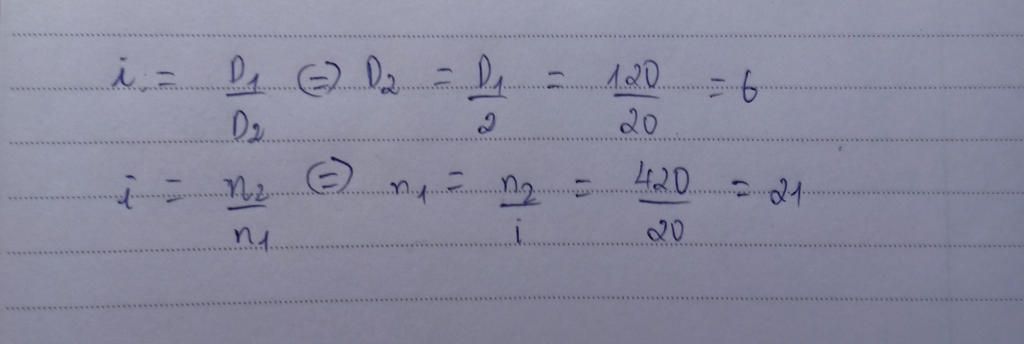 i = D1/D2 (=) D2 = D1/2 = 120/20 = 6
i = n2/n1 (=) n1 = n2/i = 420/20 = 21